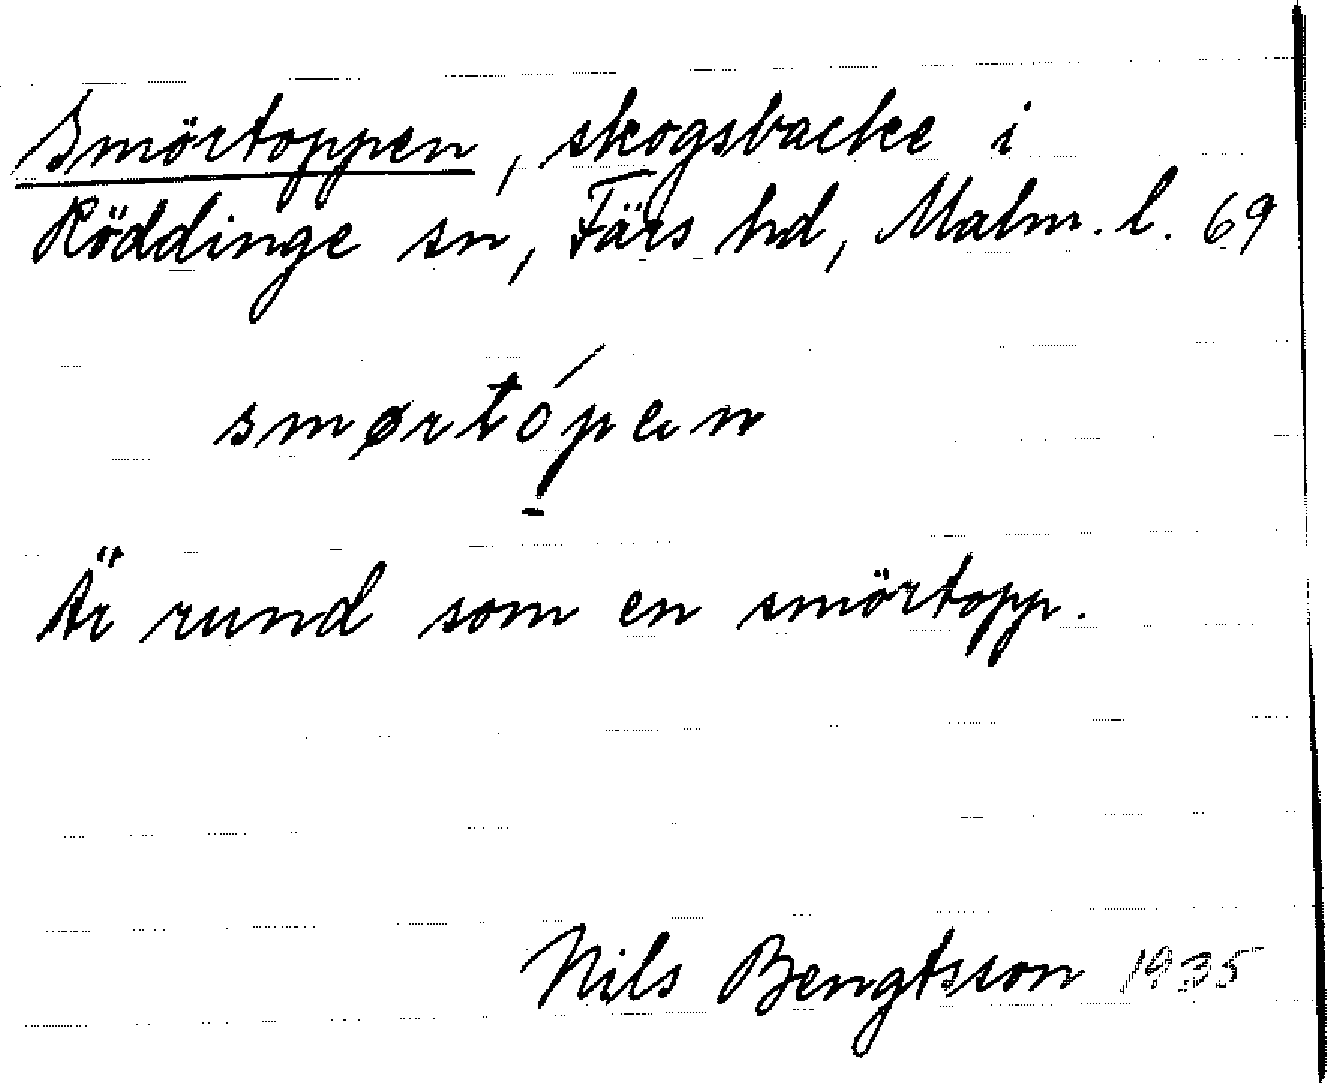 Smörtoppen, skogsbacke i
Röddinge sn, Färs hd, Malm. l. 69
smørtópen
Är rund som en smörtopp.
Nils Bengtsson 1935